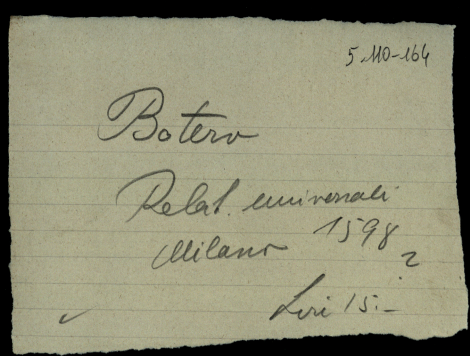 5.110-164
Botero
Relat. universali
Milano 1598
?
Liri 15.-